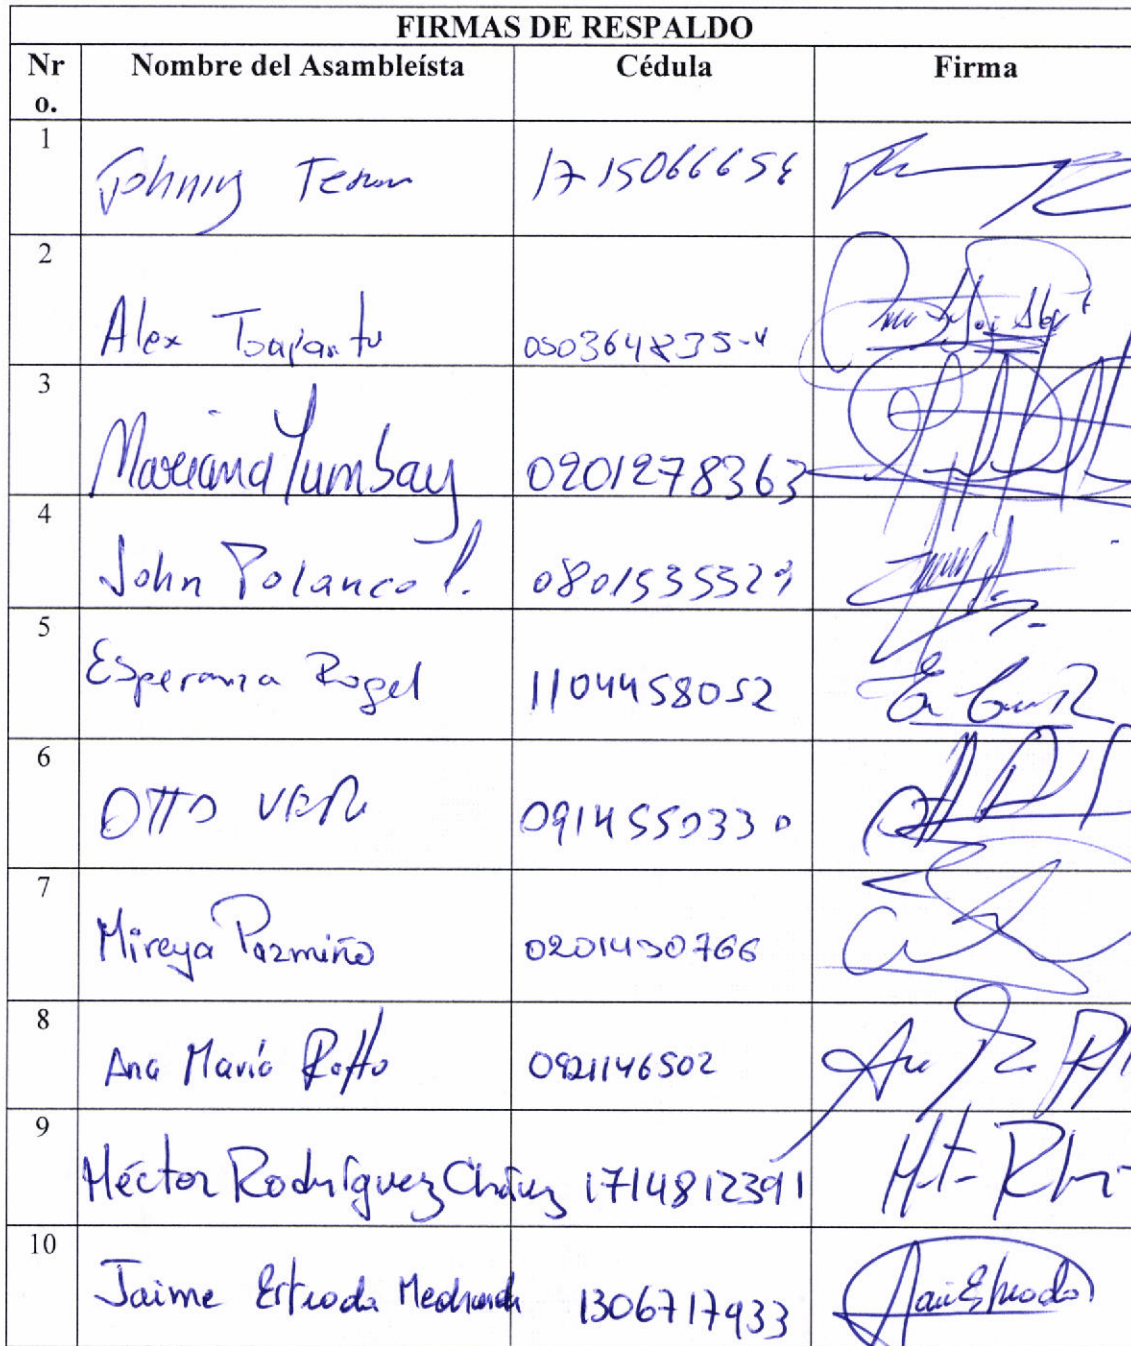 FIRMAS DE RESPALDO
Nr o. Nombre del Asambleísta Cédula Firma
1 Johnny Teran 1715066654
2 Alex Toapanta 050364835-4
3 Mariana Yumbay 0201278363
4 John Polanco P. 0801535329
5 Esperanza Rogel 1104458052
6 OTTO VERA 0914550330
7 Mireya Pazmiño 0201430766
8 Ana María Raffo 0921146502
9 Héctor Rodríguez Chávez 1714812391
10 Jaime Estrada Medranda 1306717933